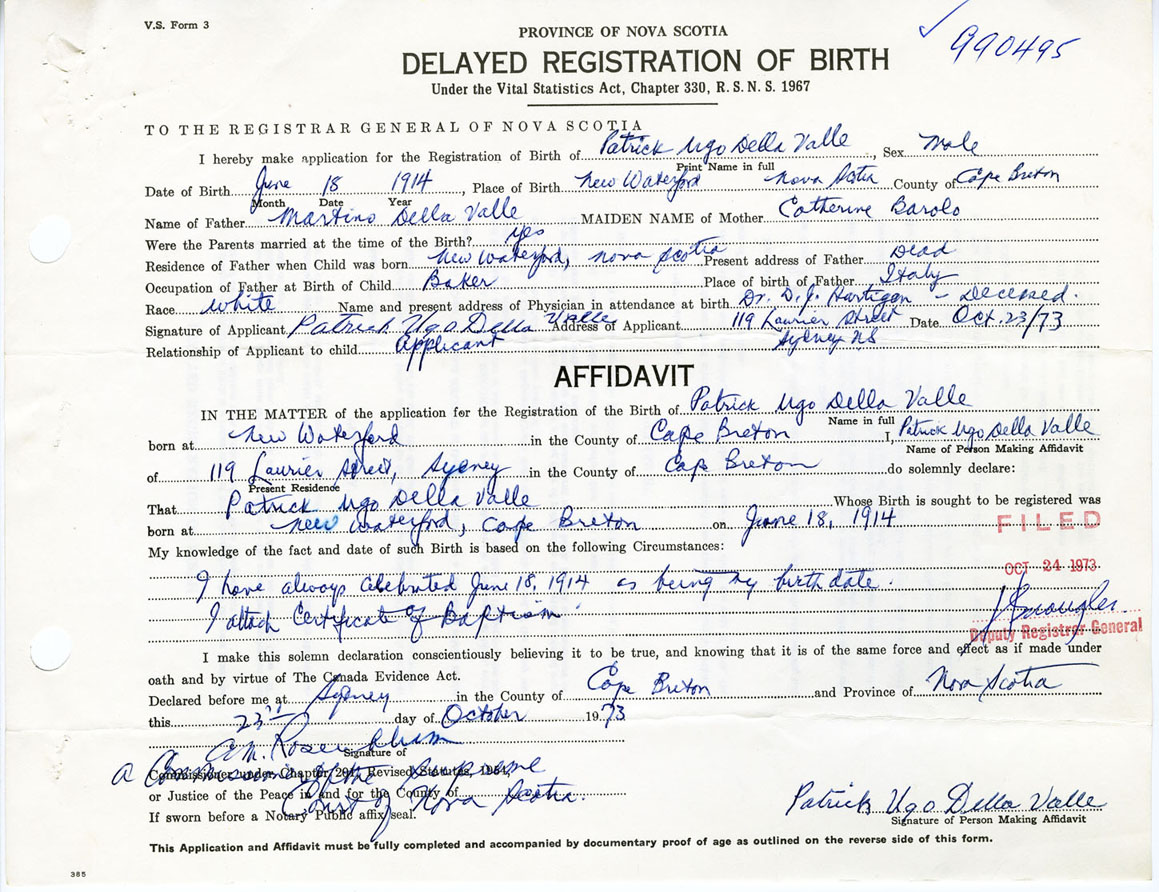 V.S. Form 3
PROVINCE OF NOVA SCOTIA
✓ 990495
DELAYED REGISTRATION OF BIRTH
Under the Vital Statistics Act, Chapter 330, R.S.N.S. 1967
TO THE REGISTRAR GENERAL OF NOVA SCOTIA
I hereby make application for the Registration of Birth of Patrick Ugo Della Valle, Sex Male
Print Name in full
Date of Birth June 18 1914, Place of Birth New Waterford Nova Scotia County of Cape Breton
Month Date Year
Name of Father Martino Della Valle MAIDEN NAME of Mother Catherine Barolo
Were the Parents married at the time of the Birth? yes
Residence of Father when Child was born New Waterford, Nova Scotia Present address of Father Dead
Occupation of Father at Birth of Child Baker Place of birth of Father Italy
Race white Name and present address of Physician in attendance at birth Dr. D. J. Hartigan - Deceased.
Signature of Applicant Patrick Ugo Della Valle Address of Applicant 119 Laurier Street Date Oct. 23/73
Relationship of Applicant to child Applicant Sydney NS
AFFIDAVIT
IN THE MATTER of the application for the Registration of the Birth of Patrick Ugo Della Valle
Name in full
born at New Waterford in the County of Cape Breton I, Patrick Ugo Della Valle
Name of Person Making Affidavit
of 119 Laurier Street, Sydney in the County of Cape Breton do solemnly declare:
Present Residence
That Patrick Ugo Della Valle Whose Birth is sought to be registered was
born at New Waterford, Cape Breton on June 18, 1914
FILED
My knowledge of the fact and date of such Birth is based on the following Circumstances:
OCT 24 1973
I have always celebrated June 18, 1914 as being my birth date.
I attach Certificate of Baptism.
Deputy Registrar General
I make this solemn declaration conscientiously believing it to be true, and knowing that it is of the same force and effect as if made under
oath and by virtue of The Canada Evidence Act.
Declared before me at Sydney in the County of Cape Breton and Province of Nova Scotia
this 23rd day of October 1973
A.M. Rosenblum
Signature of
Commissioner under Chapter 204, Revised Statutes, 1954,
a Commissioner of the Supreme
or Justice of the Peace in and for the County of
Court of Nova Scotia.
If sworn before a Notary Public affix seal.
Patrick Ugo Della Valle
Signature of Person Making Affidavit
This Application and Affidavit must be fully completed and accompanied by documentary proof of age as outlined on the reverse side of this form.
385